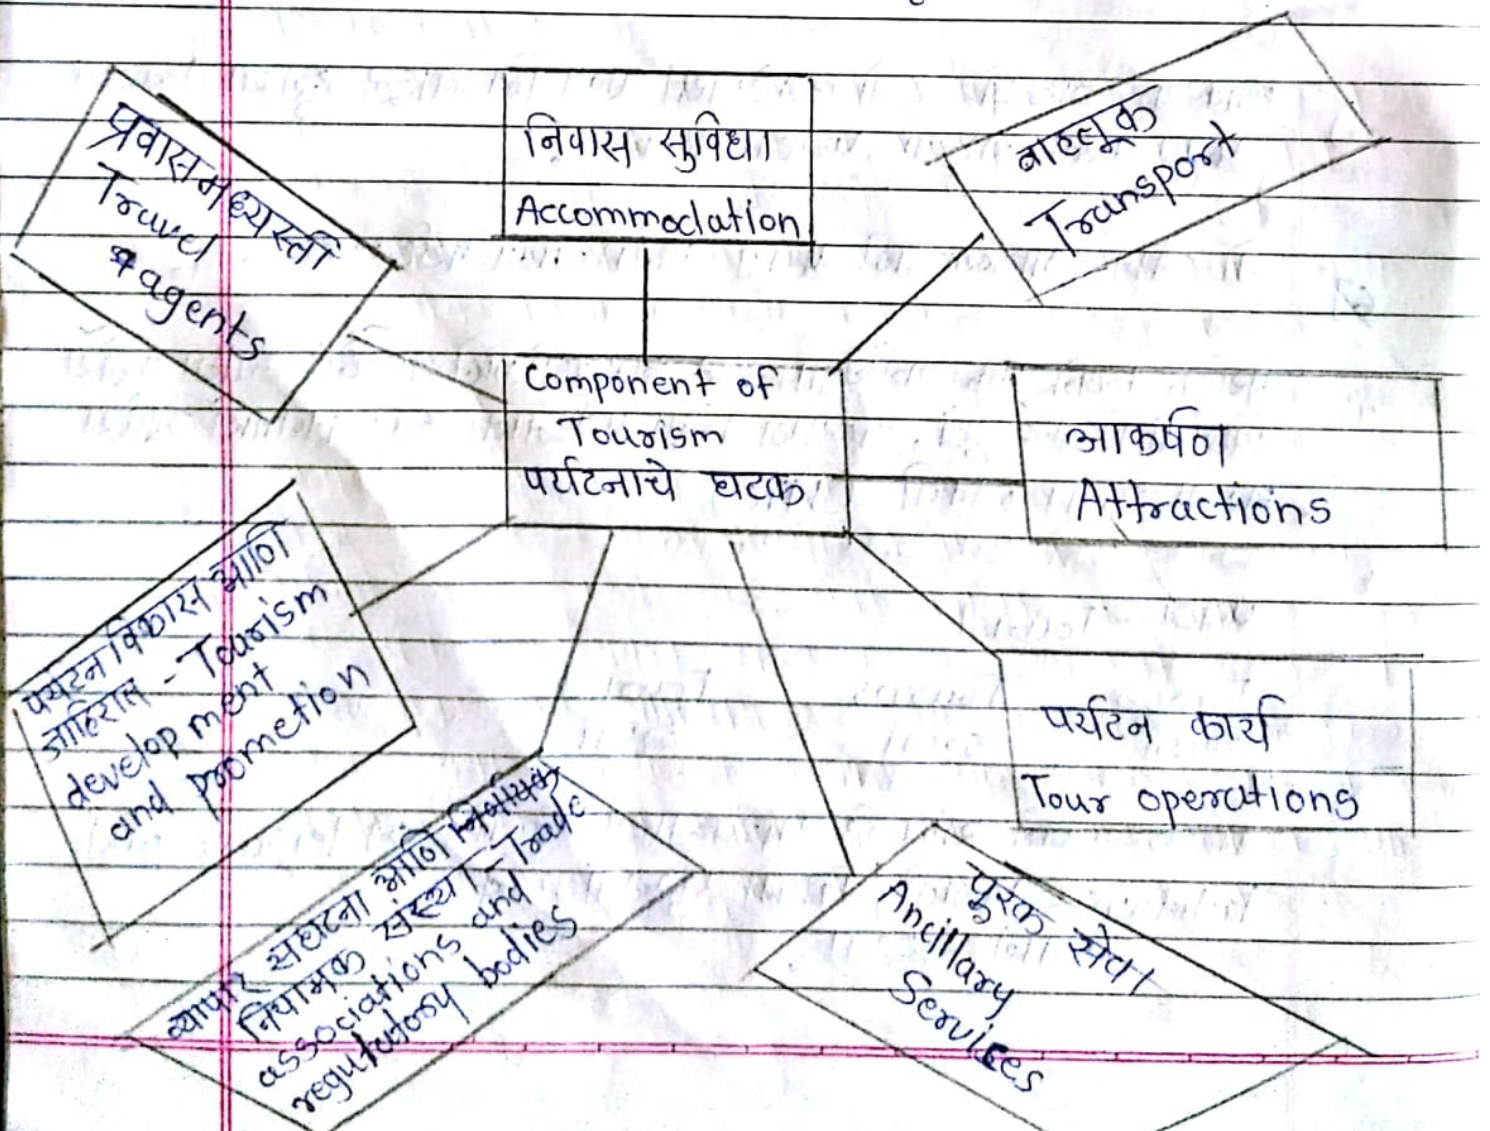 निवास सुविधा
Accommodation
वाहतूक
Transport
प्रवास मध्यस्ती
Travel
agents
Component of
Tourism
पर्यटनाचे घटक
आकर्षण
Attractions
पर्यटन विकास आणि
जाहिरात - Tourism
development
and promotion
पर्यटन कार्य
Tour operations
व्यापार संघटना आणि
नियामक संस्था - Trade
associations and
regulatory bodies
पुरक सेवा
Ancillary
Services